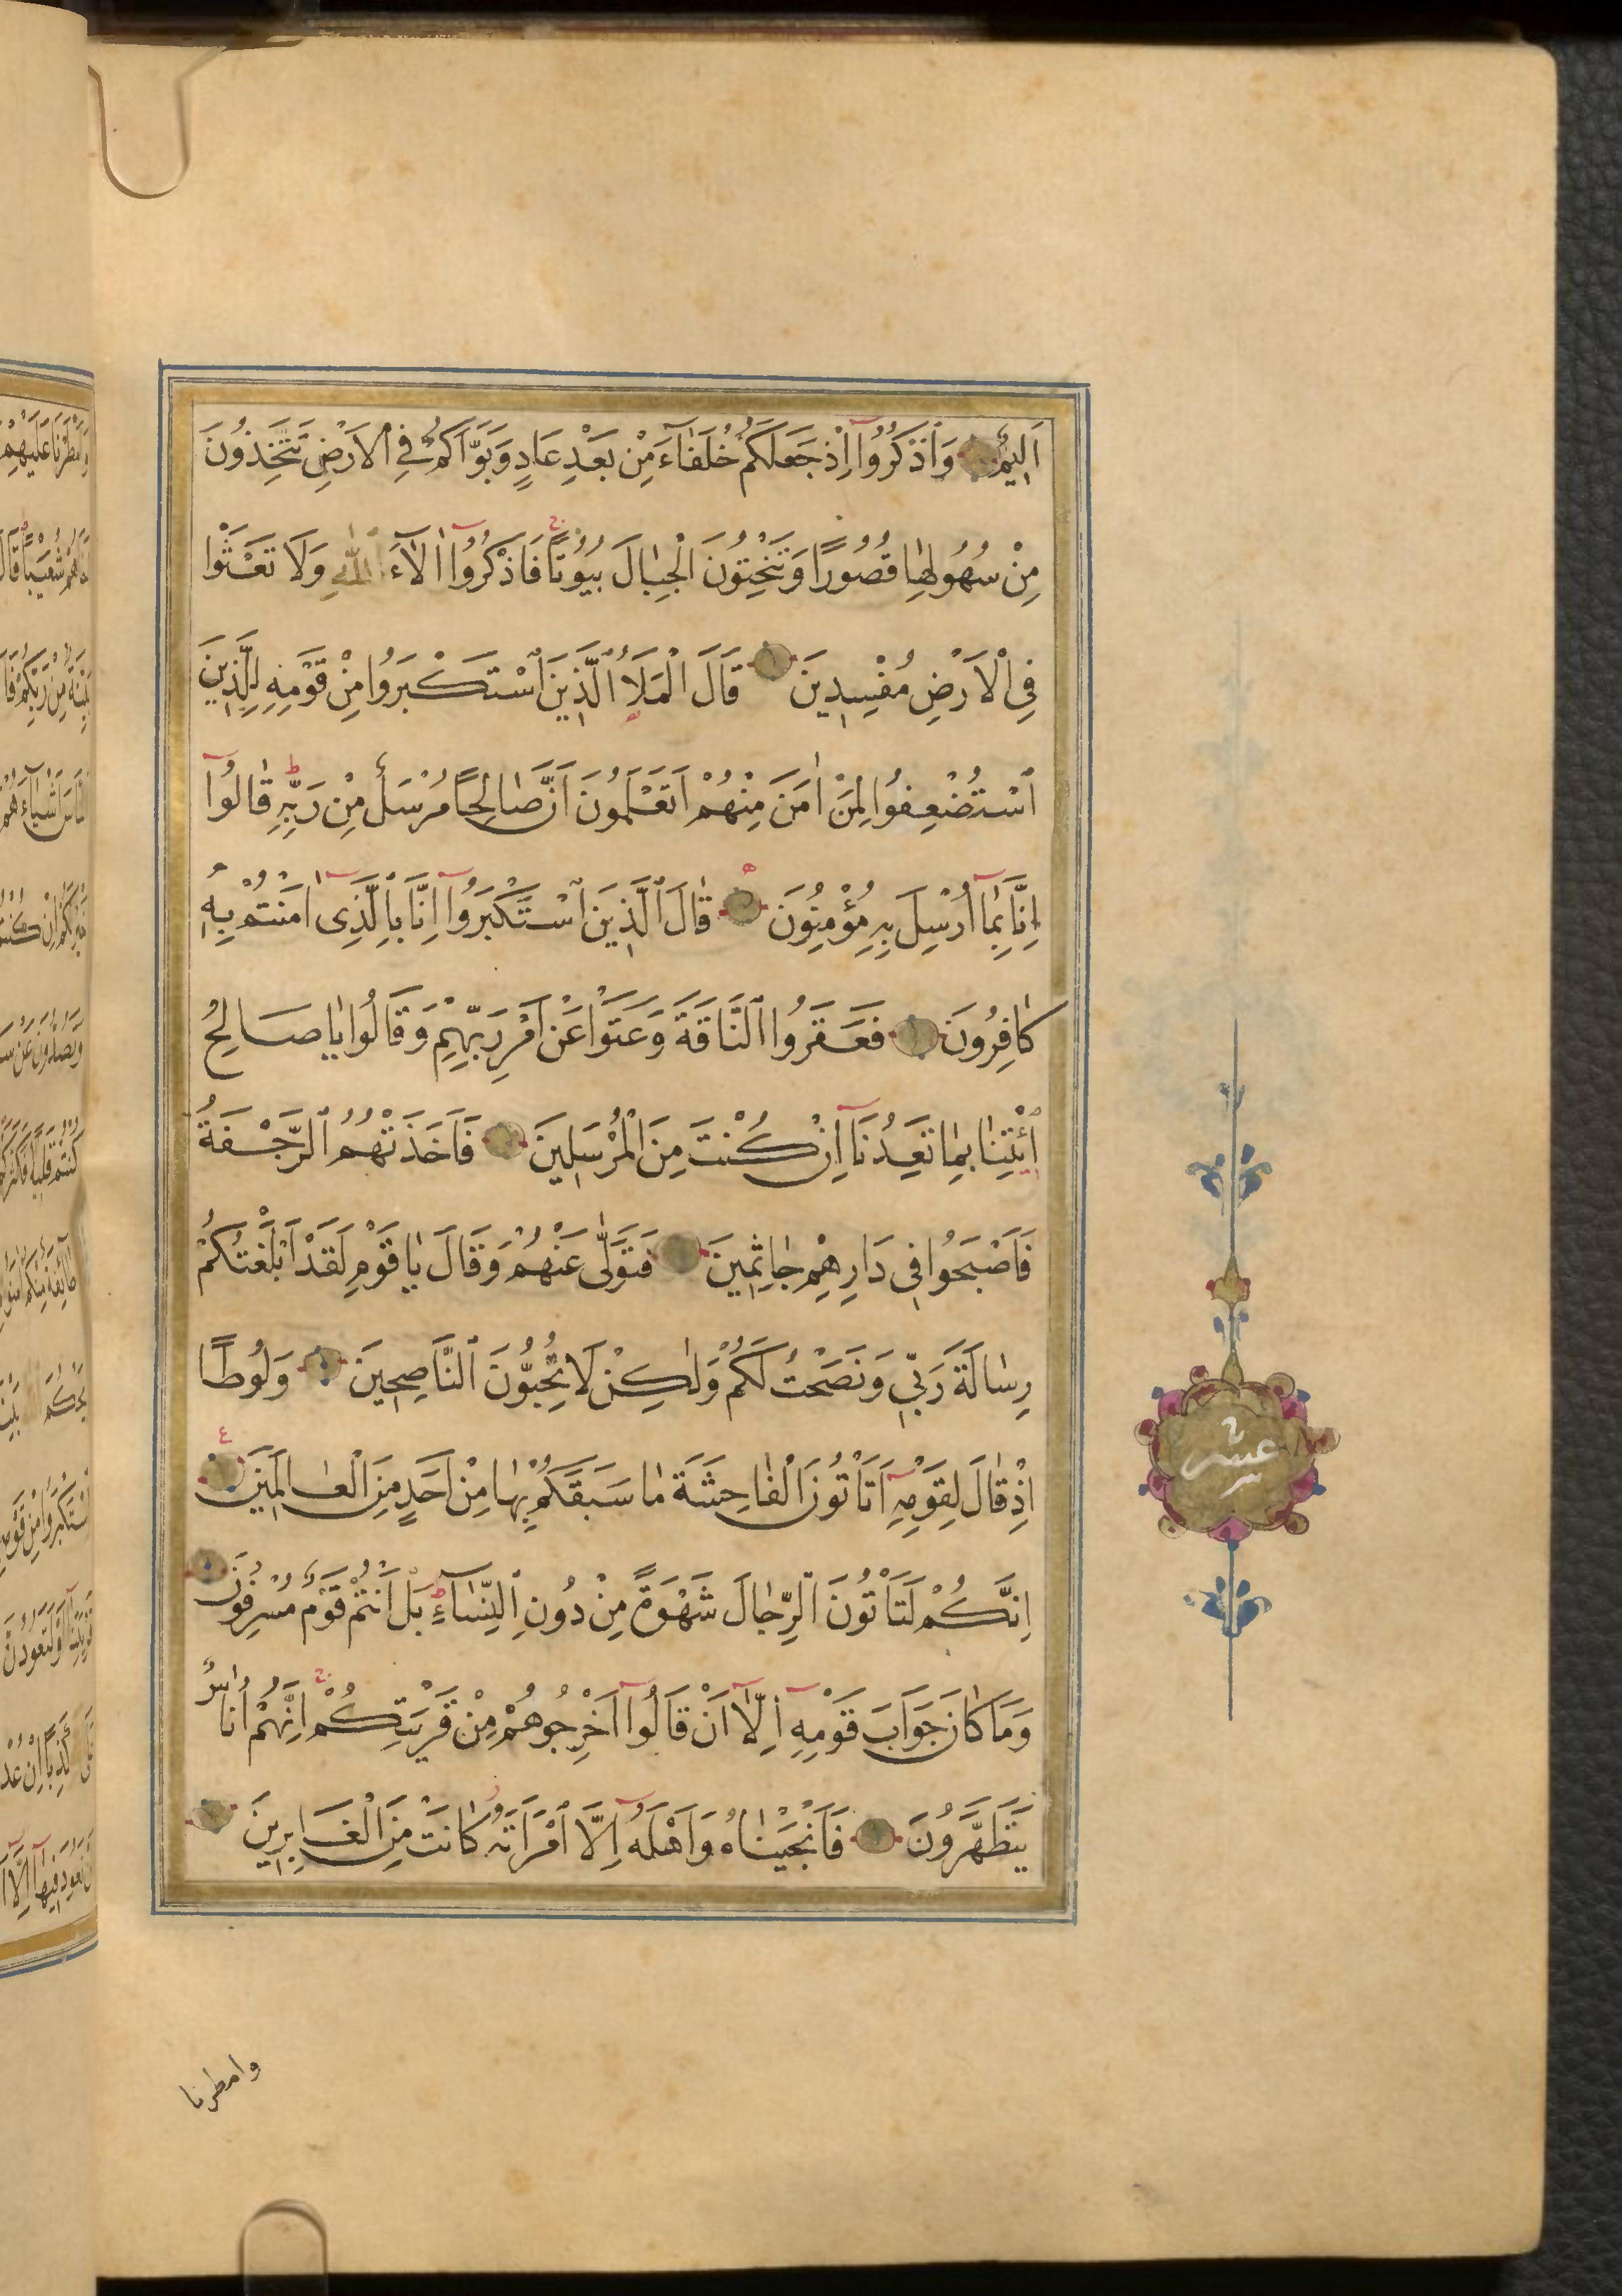 اَلِيمٌ وَاذْكُرُوا اِذْ جَعَلَكُمْ خُلَفَاءَ مِنْ بَعْدِ عَادٍ وَبَوَّاَكُمْ فِي الْاَرْضِ تَتَّخِذُونَ
مِنْ سُهُولِهَا قُصُورًا وَتَنْحِتُونَ الْجِبَالَ بُيُوتًا فَاذْكُرُوا اٰلَاءَ اللّٰهِ وَلَا تَعْثَوْا
فِي الْاَرْضِ مُفْسِدِينَ قَالَ الْمَلَاُ الَّذِينَ اسْتَكْبَرُوا مِنْ قَوْمِهِ لِلَّذِينَ
اسْتُضْعِفُوا لِمَنْ اٰمَنَ مِنْهُمْ اَتَعْلَمُونَ اَنَّ صَالِحًا مُرْسَلٌ مِنْ رَبِّهِ قَالُوا
اِنَّا بِمَا اُرْسِلَ بِهِ مُؤْمِنُونَ قَالَ الَّذِينَ اسْتَكْبَرُوا اِنَّا بِالَّذِي اٰمَنْتُمْ بِهِ
كَافِرُونَ فَعَقَرُوا النَّاقَةَ وَعَتَوْا عَنْ اَمْرِ رَبِّهِمْ وَقَالُوا يَا صَالِحُ
ائْتِنَا بِمَا تَعِدُنَا اِنْ كُنْتَ مِنَ الْمُرْسَلِينَ فَاَخَذَتْهُمُ الرَّجْفَةُ
فَاَصْبَحُوا فِي دَارِهِمْ جَاثِمِينَ فَتَوَلّٰى عَنْهُمْ وَقَالَ يَا قَوْمِ لَقَدْ اَبْلَغْتُكُمْ
رِسَالَةَ رَبِّي وَنَصَحْتُ لَكُمْ وَلٰكِنْ لَا تُحِبُّونَ النَّاصِحِينَ وَلُوطًا
اِذْ قَالَ لِقَوْمِهِ اَتَاْتُونَ الْفَاحِشَةَ مَا سَبَقَكُمْ بِهَا مِنْ اَحَدٍ مِنَ الْعَالَمِينَ
اِنَّكُمْ لَتَاْتُونَ الرِّجَالَ شَهْوَةً مِنْ دُونِ النِّسَاءِ بَلْ اَنْتُمْ قَوْمٌ مُسْرِفُونَ
وَمَا كَانَ جَوَابَ قَوْمِهِ اِلَّا اَنْ قَالُوا اَخْرِجُوهُمْ مِنْ قَرْيَتِكُمْ اِنَّهُمْ اُنَاسٌ
يَتَطَهَّرُونَ فَاَنْجَيْنَاهُ وَاَهْلَهُ اِلَّا امْرَاَتَهُ كَانَتْ مِنَ الْغَابِرِينَ
عشر
وامطرنا